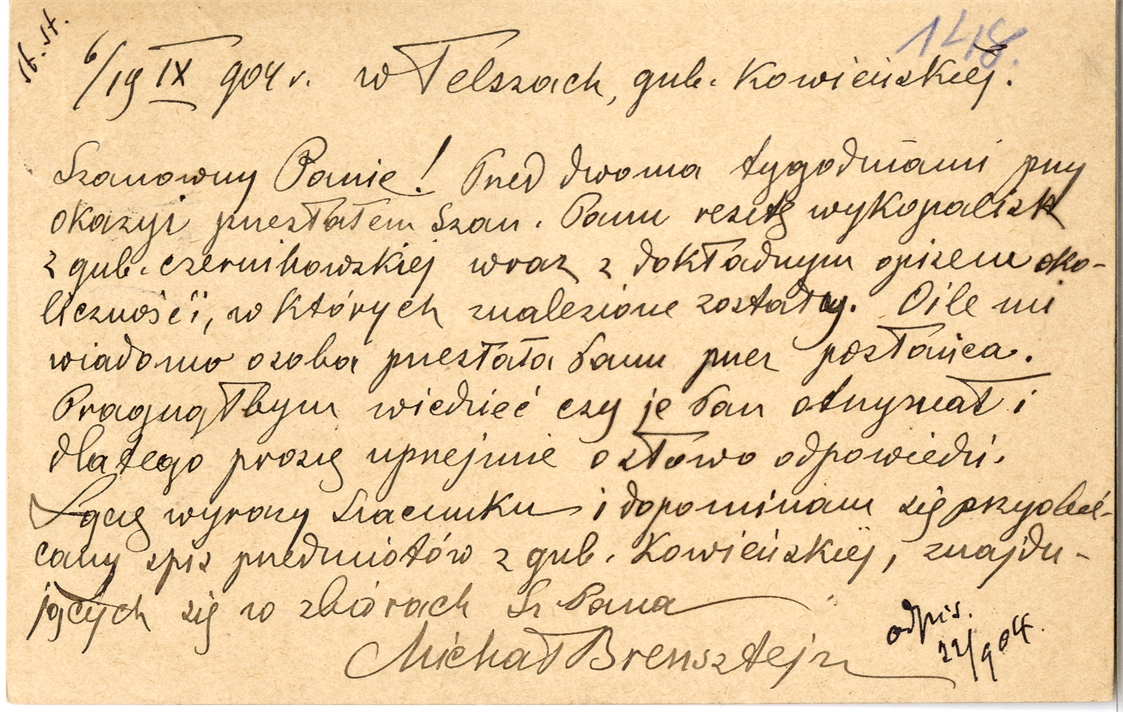 st. st.
148.
6/19 IX 904 r. w Telszach, gub. Kowieńskiej.
Szanowny Panie! Przed dwoma tygodniami przy
okazyi przesłałem Szan. Panu resztę wykopalisk
z gub. czernihowskiej wraz z dokładnym opisem oko-
liczności, w których znalezione zostały. O ile mi
wiadomo osoba przesłała Panu przez posłańca.
Pragnąłbym wiedzieć czy je Pan otrzymał i
dlatego proszę uprzejmie o słowo odpowiedzi.
Łączę wyrazy szacunku i dopominam się przyobie-
cany spis przedmiotów z gub. Kowieńskiej, znajdu-
jących się w zbiorach Sz Pana
Michał Brensztejn
odpis.
22/904.